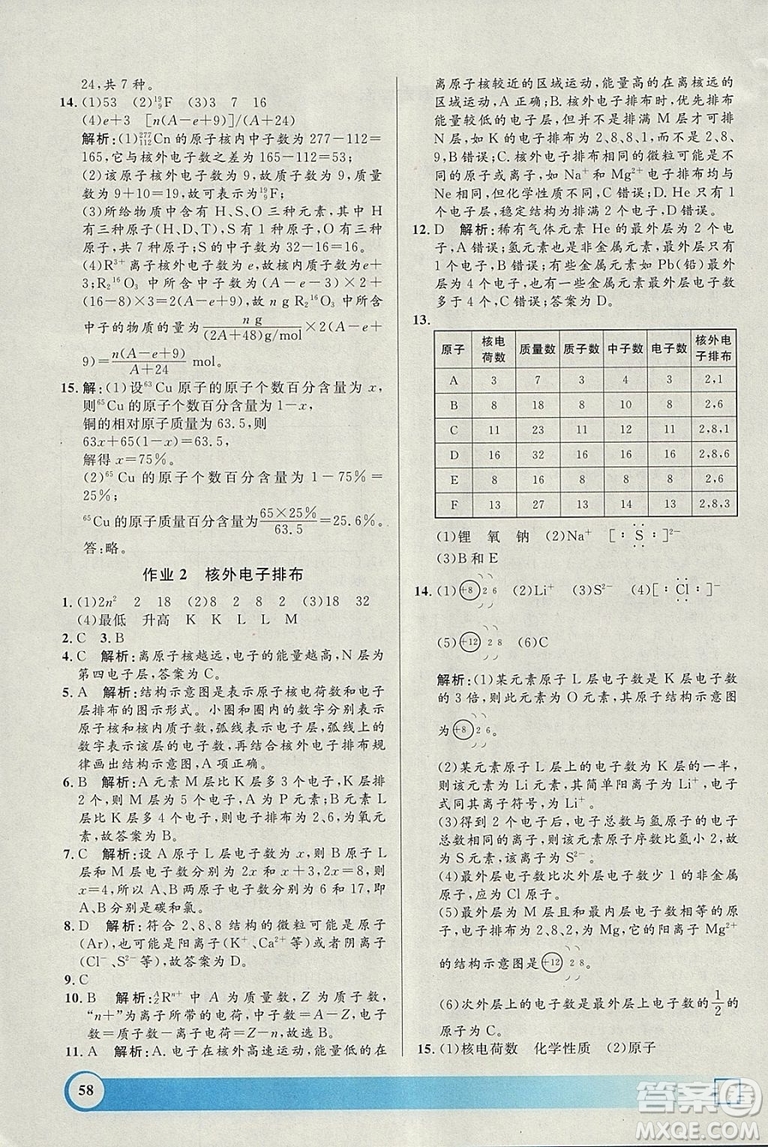 24,共7种。
14. (1)53 (2)¹⁹₉F (3)3 7 16
(4)e+3 [n(A-e+9)/(A+24)
解析:(1)²⁷⁷₁₁₂Cn的原子核内中子数为277-112=
165,它与核外电子数之差为165-112=53。
(2)该原子核外电子数为9,质子数为9,质量数
为19。故可表示为¹⁹₉F;
(3)所给物质中含有H、S、O三种元素,其中H
有三种原子(H、D、T),S有一种原子,O有三种
原子,共7种原子,S的中子数为32-16=16。
(4)R³⁺离子核外电子数为e,故核内质子数为
e+3;R₂¹⁶O₃中所含中子数为(A-e-3)×2+
(16-8)×3=2(A-e+9),故n g R₂¹⁶O₃中所含
中子的物质的量为n g/(2A+48)g/mol×2(A-e+
9)=n(A-e+9)/A+24 mol。
15. 解:(1)设⁶³Cu原子的原子数百分含量为x,
则⁶⁵Cu的原子个数百分含量为1-x,
铜的相对原子质量为63.5,则
63x+65(1-x)=63.5,
解得x=75%。
(2)⁶⁵Cu的原子个数百分含量为1-75%=
25%;
⁶⁵Cu的原子质量百分含量为65×25%/63.5=25.6%。
答:略。
作业2 核外电子排布
1. (1)2n² 2 18 (2)8 2 8 2 (3)18 32
(4)最低 升高 K L K L
2. C 3. B
4. C 解析:离原子核越远,电子的能量越高,N层为
第四电子层,答案为C。
5. A 解析:结构示意图是表示原子核电荷数和电子
层排布的图示形式。小圈和圈内的数字分别表示
原子核和核内质子数,弧线表示电子层,弧线上的
数字表示该层的电子数,再结合核外电子排布规
律画出结构示意图,A项正确。
6. B 解析:A元素M层比K层多1个电子,K层排
2个,则M层为3个电子,P元素为Al,B元素L层
比K层多4个电子,故电子排布为2、6,为氧元
素,故答案为B。
7. C 解析:设A原子L层电子数为x,则B原子L
层和M层电子数分别为2x和x+3。2x=8,则x
=4,所以A、B两原子电子数分别为6和17,即A、
B分别是碳和氯。
8. D 解析:符合2、8、8结构的微粒可能是原子
(Ar),也可能是阳离子(K⁺、Ca²⁺等)或阴离子
(Cl⁻、S²⁻等),故答案为D。
9. C
10. B 解析:ᴬ_ZRⁿ⁺中A为质量数,Z为质子数,
“n+”为离子所带的电荷,中子数=质量数-质子
数,电子数=质子数-电荷=Z-n,故选B。
11. A 解析:A.电子在核外高速运动,能量低的在
离原子核较近的区域运动,能量高的在离核远的
区域运动,A正确;B.核外电子排布时,优先排布
能量较低的电子层,但不是排满M层才可排N
层,如K的核外电子排布为2、8、8、1,不是2、8、
9,B错误;C.核外电子排布相同的微粒可能是离
子,也可能是原子,如Na⁺和Mg²⁺电子排布均与
Ne相同,但化学性质不同,C错误;D.He只有一
个电子层,稳定结构为排满2个电子,D错误。
12. D 解析:稀有气体元素He的最外层为2个电
子,A错误;氢元素也是非金属元素,最外层为1
个电子,B错误;有些金属元素如Pb(铅)最外层
电子数大于3个,C错误;有些金属元素最外层电
子数多于4个,D正确;答案为D。
13.
原子 核电荷数 质量数 质子数 中子数 电子数 核外电子排布
A 3 7 3 4 3 2,1
B 8 18 8 10 8 2,6
C 11 23 11 12 11 2,8,1
D 16 32 16 16 16 2,8,6
E 8 16 8 8 8 2,6
F 13 27 13 14 13 2,8,3
(1)锂 氧 钠 (2)Na⁺ [:S:]²⁻
(3)B和E
14. (1) +8 2 6 (2)Li⁺ (3)S²⁻ (4)[:Cl:]⁻
(5) +12 2 8 (6)C
解析:(1)某元素原子L层电子数是K层电子数
的3倍,则元素为O元素,其原子结构示意图
为 +8 2 6 。
(2)某元素原子L层电子数为K层的一半,
则该元素为Li元素,其简单阳离子为Li⁺,电子
式同其离子符号,为Li⁺。
(3)得到2个电子后,电子总数与氩原子电子总
数相同,则该元素原子序数比氩少2,即该元素
原子序数为16,该离子为S²⁻。
(4)最外层电子数为次外层电子数一半的非金属
原子,应为Cl原子。
(5)最外层为M层且和最内层电子数相等的原
子,电子排布为2、8、2,为Mg,它完成最外层失电子
的结构示意图为 +12 2 8 。
(6)次外层上的电子数是最外层上电子数的1/2的
原子是C原子。
15. (1)核电荷数 化学性质 (2)原子
58
答案圈
MXQE.COM